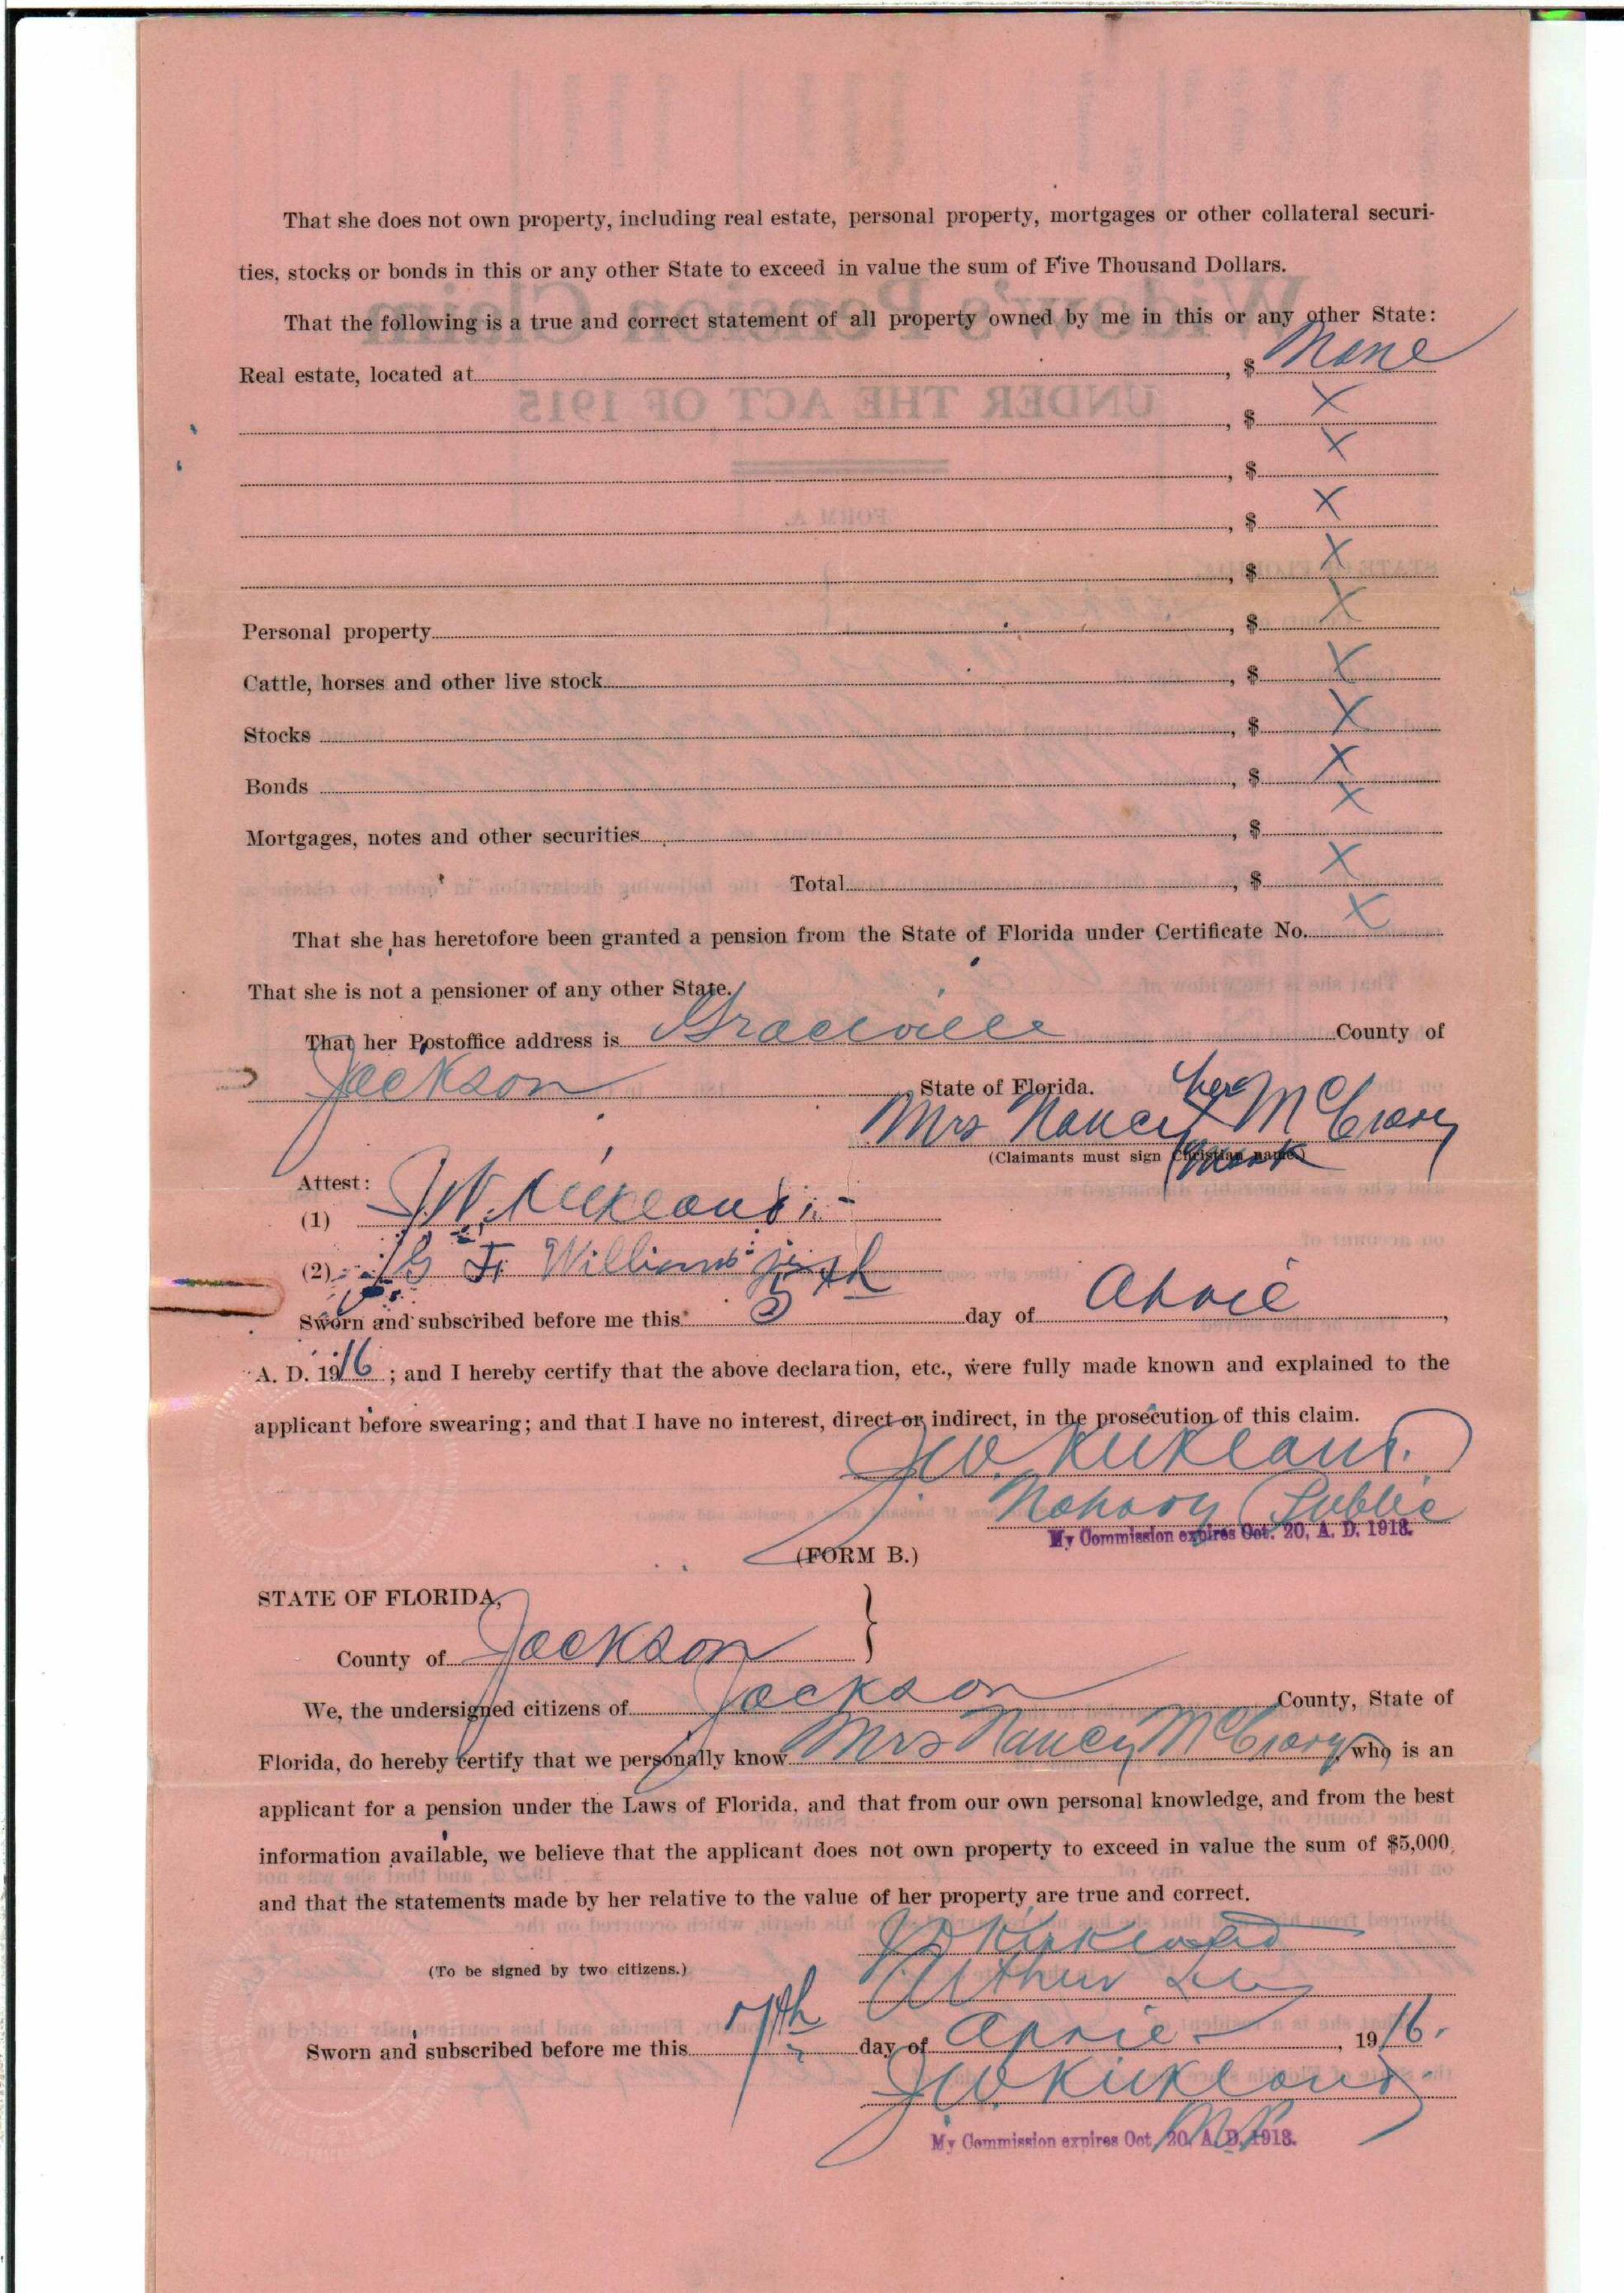 That she does not own property, including real estate, personal property, mortgages or other collateral securi-
ties, stocks or bonds in this or any other State to exceed in value the sum of Five Thousand Dollars.
That the following is a true and correct statement of all property owned by me in this or any other State:
Real estate, located at , $ None
, $ X
, $ X
, $ X
, $ X
Personal property , $ X
Cattle, horses and other live stock , $ X
Stocks , $ X
Bonds , $ X
Mortgages, notes and other securities , $ X
Total , $ X
That she has heretofore been granted a pension from the State of Florida under Certificate No. X
That she is not a pensioner of any other State.
That her Postoffice address is Graceville County of
Jackson , State of Florida.
her
Mrs Nancy X McCrary
mark
(Claimants must sign Christian name.)
Attest:
(1) J W. Kirkland
(2) G F. Williams
Sworn and subscribed before me this 5th day of April ,
A. D. 1916 ; and I hereby certify that the above declaration, etc., were fully made known and explained to the
applicant before swearing; and that I have no interest, direct or indirect, in the prosecution of this claim.
J.W. Kirkland.
Notary Public
My Commission expires Oct. 20, A. D. 1918.
(FORM B.)
STATE OF FLORIDA,
County of Jackson }
We, the undersigned citizens of Jackson County, State of
Florida, do hereby certify that we personally know Mrs Nancy McCrary, who is an
applicant for a pension under the Laws of Florida, and that from our own personal knowledge, and from the best
information available, we believe that the applicant does not own property to exceed in value the sum of $5,000,
and that the statements made by her relative to the value of her property are true and correct.
Kirkland
(To be signed by two citizens.)
Arthur Lee
Sworn and subscribed before me this 7th day of April , 1916.
J.W. Kirkland
N.P.
My Commission expires Oct. 20, A. D. 1918.